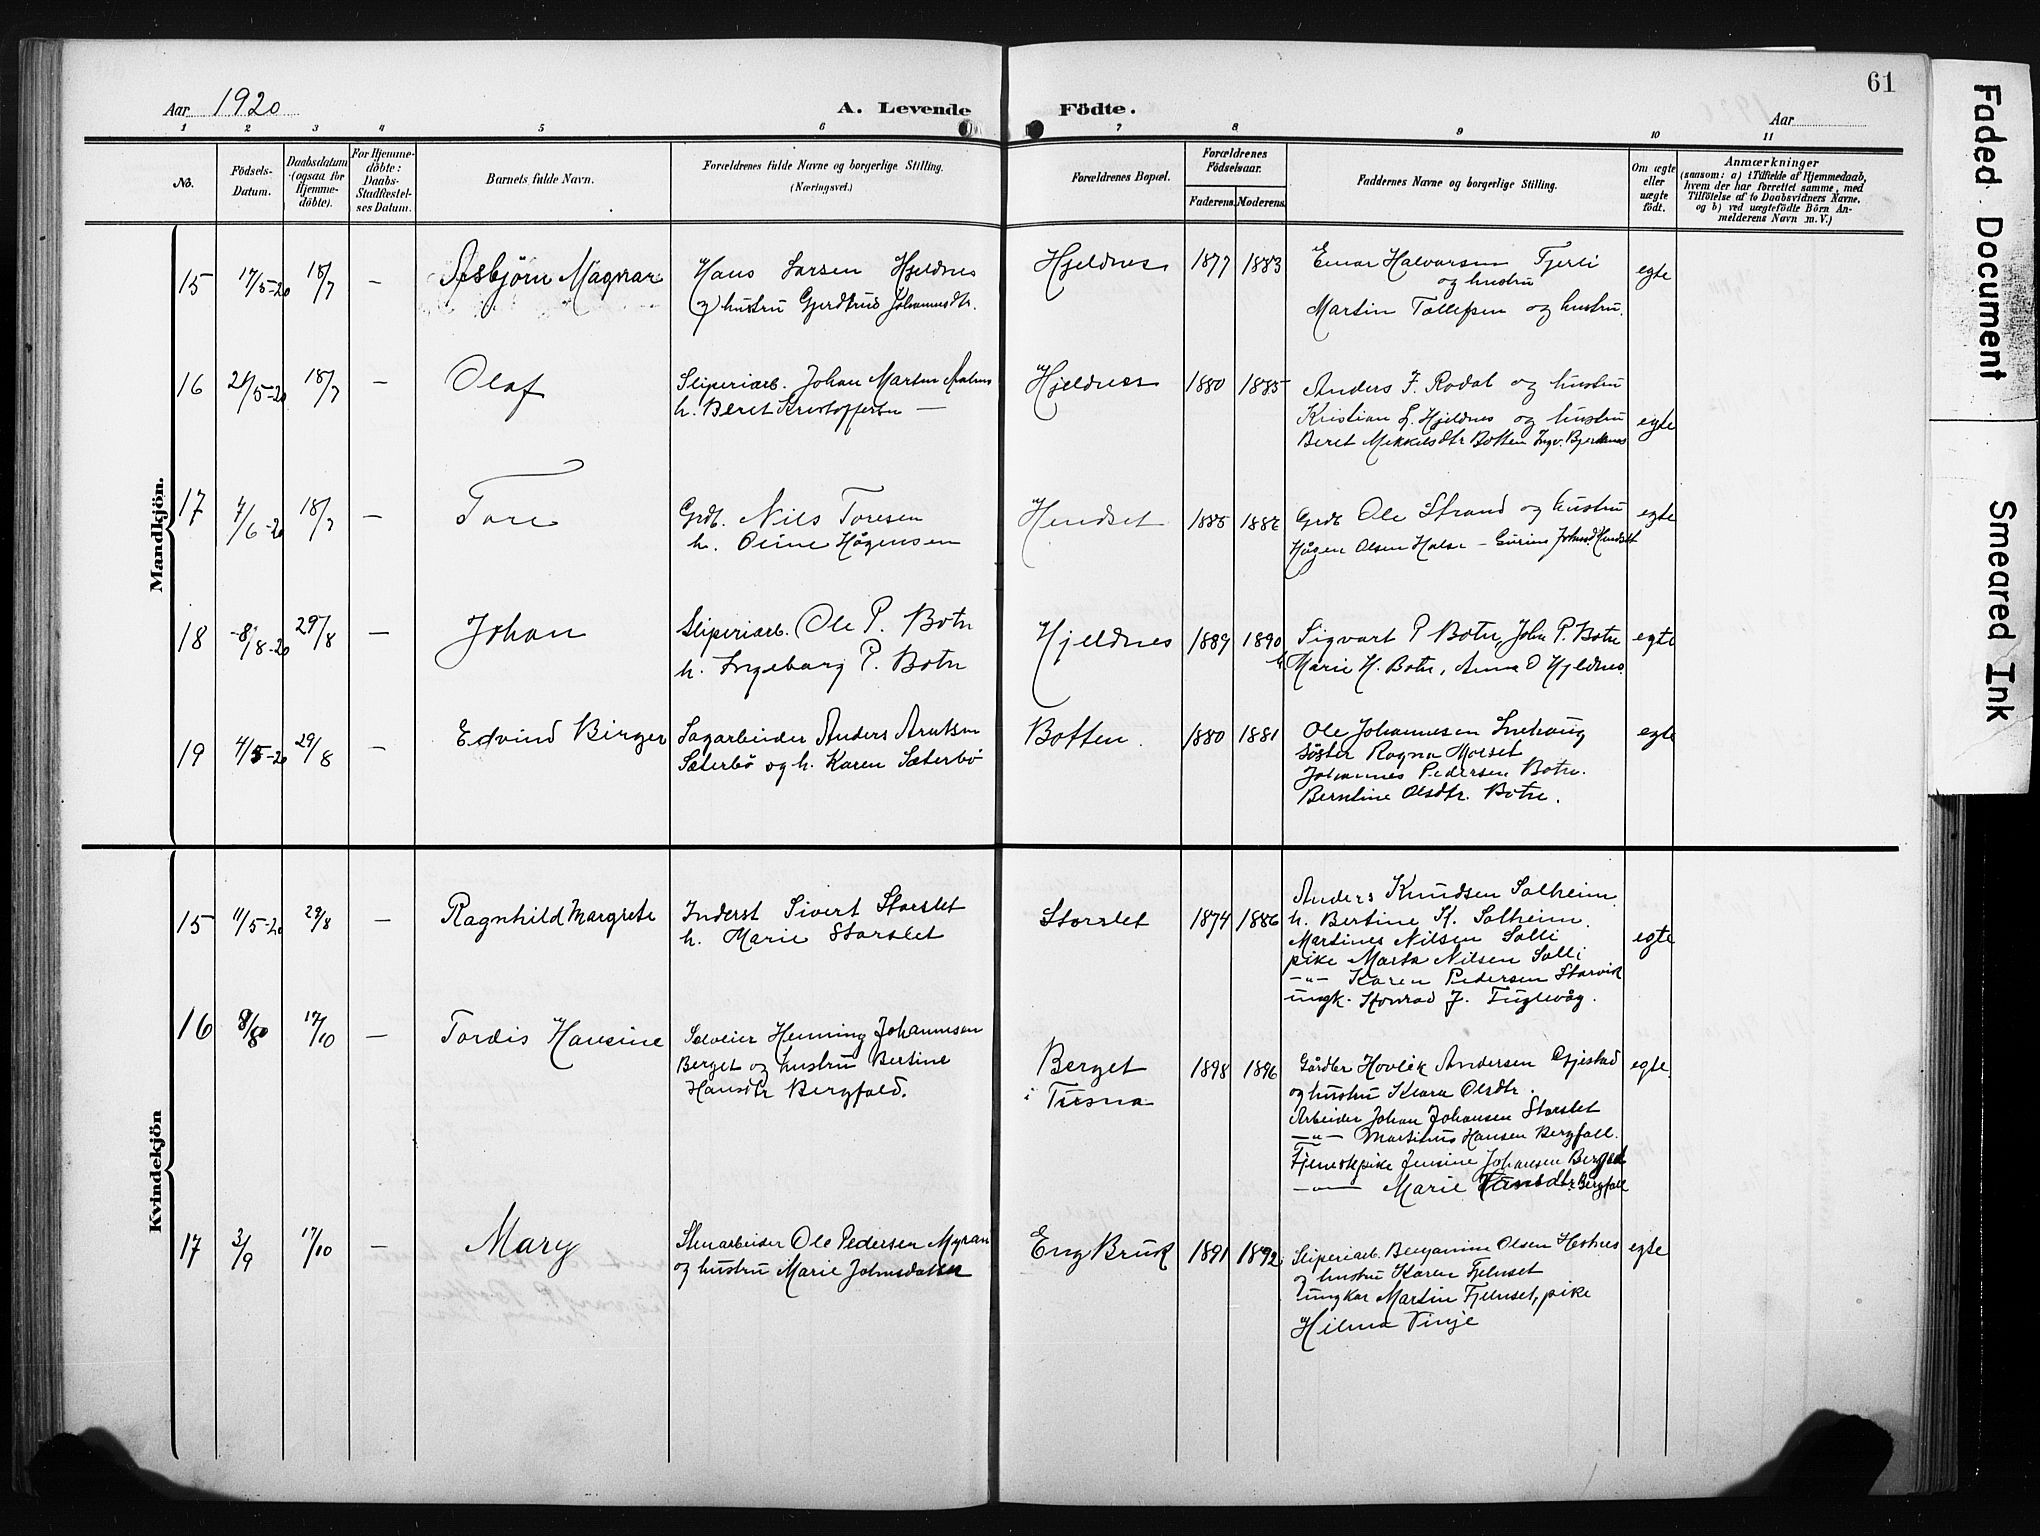 61
Aar 1920
A. Levende Födte.
Aar
1 2 3 4 5 6 7 8 9 10 11
No.
Födsels-Datum.
Daabsdatum (ogsaa for Hjemmedöbte).
For Hjemmedöbte: Daabs-Stadfæstelses Datum.
Barnets fulde Navn.
Forældrenes fulde Navne og borgerlige Stilling.
(Næringsvei.)
Forældrenes Bopæl.
Forældrenes Födselsaar.
Faderens. Moderens.
Faddernes Navne og borgerlige Stilling.
Om ægte eller uægte født.
Anmærkninger
(saasom: a) i Tilfælde af Hjemmedaab,
hvem der har forrettet samme, med
Tilföielse af to Daabsvidners Navne,
og b) ved uægtefödte Börn Anmelderens Navn m. V.)
Mandkjön.
15 17/5-20 18/7 — Asbjörn Magnar
Hans Larsen Hjeldnes
og hustru Gjerdtrud Johannesdtr.
Hjeldnes 1877 1883
Einar Halvorsen Tjerli
og hustru
Martin Tollefsen og hustru.
egte
16 21/5-20 18/7 — Olaf
Sliperiarb. Johan Martin Malmo
h. Beret Kristoffersen —
Hjeldnes 1880 1885
Anders J. Rodal og hustru
Kristian L. Hjeldnes og hustru
Beret Mikkelsdtr Botten Ingv. Bjerknes
egte
17 4/6-20 18/7 — Tore
Grdb. Nils Toresen
h. Oline Hågensen
Hendset 1885 1882
Grdb Ole Strand og hustru
Hågen Olsen Halse —
egte
18 8/8-20 29/8 — Johan
Sliperiarb. Ole P. Botn
h. Ingeborg P. Botn
Hjeldnes 1889 1890
Sigvart P Botn, John P. Botn
h Marie H. Botn, Anna O Hjeldnes.
egte
19 4/5-20 29/8 — Edvind Birger
Sagarbeider Anders Arntsen
Sæterbø og h. Karen Sæterbø
Botten. 1880 1881
Ole Johannesen Snehaug
Søster Ragna Morset
Johannes Pedersen Botn.
Berntine Olsdtr. Botn.
egte
Kvindekjön
15 11/5-20 29/8 — Ragnhild Margrete
Inderst Sivert Storslet
h. Marie Storslet
Storslet 1874 1886
Anders Knudsen Solheim
h. Bertine K. Solheim.
Martines Nilsen Solli
pike Marta Nilsen Solli
—"— Karen Pedersen Storvik
ungk. Konrad J. Fuglevåg.
egte
16 9/8 17/10 — Tordis Hansine
Selveier Henning Johannesen
Berget og hustru Bertine
Hansdtr Bergfald.
Berget
i Tusna
1898 1896
Gårdbr Hovlek Andersen Gjestad
og hustru Klara Olsdtr.
Arbeider Johan Johansen Storslet
—"— Martinus Hansen Bergfall.
Tjenestepike Jensine Johansen Berget
—"— Marie Hansdtr Bergfall
egte.
17 3/9 17/10 — Mary
Stenarbeider Ole Pedersen Myran
og hustru Marie Johnsdatter
Eng Bruk 1891 1892
Sliperiarb. Benjamin Olsen Hestnes
og hustru Karen Fjelnset
ungkar Martin Fjelnset, pike
Hilma Vinje
egte
Faded Document
Smeared Ink